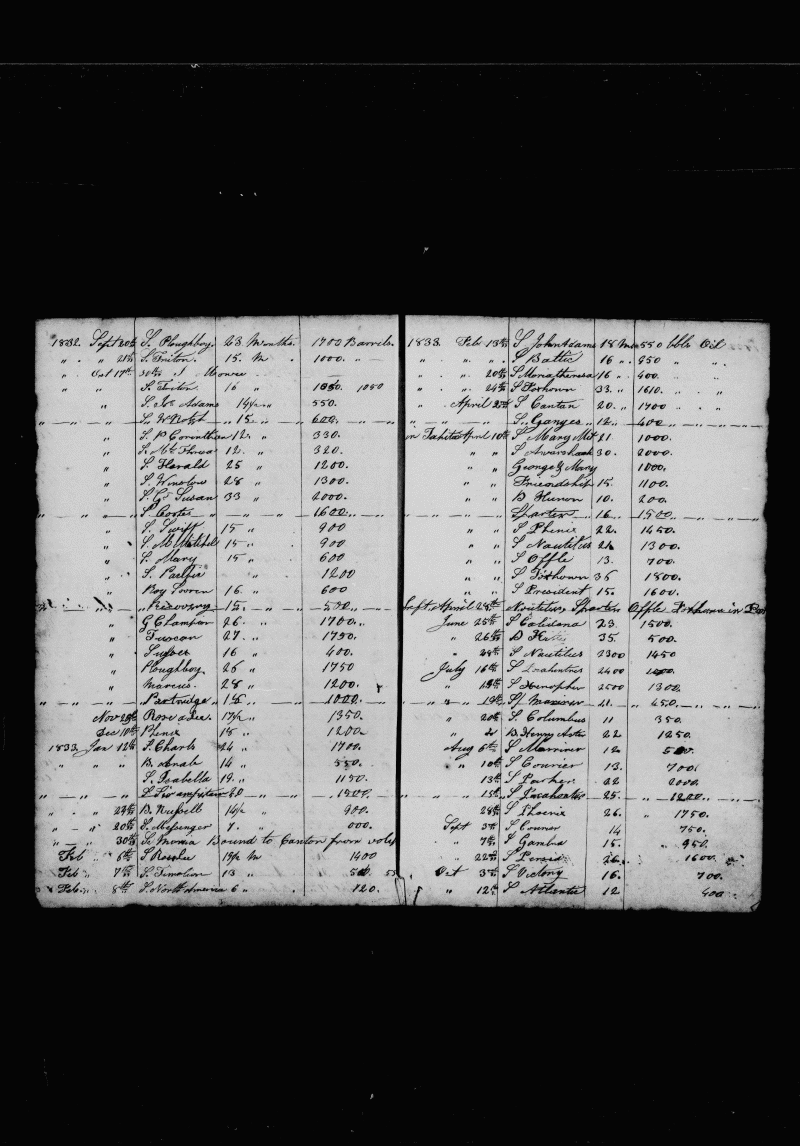 1832. Sept 20th S. Ploughboy. 23 Months. 1700 Barrels
" . " 28th S. Triton. 15. M . 1000. " —
" Oct 17th 30th S
" " S. Triton 16 " 1050 1050
" S. Jno Adams 14½ " 550.
" — " — " — " S. W Rotch " 15. — " — 600. — " — "
" S. P Corinthian 12. " 330.
" S. Mt. 12. " 320.
" S. Herald 25 " 1200.
" S. Winslow 28 " 1300.
" S. G. Susan 33 " 2000.
" — " — " — " S. Cortes " — " — 1600. " — " — "
" S. Swift 15 " 900
" S. M. Mitchel 15 " 900
" S. Mary 15 " 600
" S. Pacific 1200
" Roy 16 " 600
" — " Recovery — 15. — " — 500 — " — " —
" G Champion 26 . " 1700. "
" Tuscan 27. . " 1750.
" 16 " 400.
" Ploughboy 26 " 1750
" Marcus. 28 " 1200.
" — " — " — " Partridge " 15 — " — 1000. — " — " —
Nov 29th Rose 17½ " 1350.
Dec 10th Phenix 18 " . 1200.
1833. Jan 12th S. Charls 24 " 1700.
" " " B. 14 " 550.
S. Isabella 19. " 1150.
" — " — " — " 20 — " — " 1800. — " —
" . " 29th B. Russell 14½ " 900.
" — " 20th S. Messenger 7. " 000.
" — " 30th S. Bound to Canton from
Feb " 6th S. 19½ M 1400
Feb " 7th S. Timolion 13 "
Feb. " 8th S. North America 6 " . 120.
1833. Feb 13th S John Adams 18 Mo 550 bbls Oil
" . " . " S Baltic 16 " . 950 " "
" . " 20th S Mariatheresa 16 " . 400. " "
" " 24th S Foxhown 33. " 1610. " . "
" . April 25th S Cantan 20. " 1700 " . "
" — " — " — " S,, Ganges " 12. — " 400 — " — " — "
in Tahitie April 10th S Mary Mit 21 1000.
" " S Awarshonk 30. 2000.
" " George & Mary 1000.
" " Friendship 15. 1100.
" " B Huron 10. 200.
" — " — " — " Spartan — 16 — " 1500 — " — "
" " S Phenix 22. 1450.
" " S Nautilus 21. 1300.
" " S Offle 13. 700.
" " S Foxhown 36 1800.
" " S President 15. 1600.
Sept. April 28th Nautilus Spartan Offle Foxhown in
June 25th S Calidona 23. 1500.
" 26th B 35 500.
" 28th S Nautilus 2300 1450
July 16th S Pocahontas 2400
" 18th S Xenophon 2500 1300.
" — " — " 19th S/ 21. — " 450. — " — "
" 20th S Columbus 11 350.
" " B Henry Astor 22 1250.
Aug 6th S Marriner 12 500.
" 10th S Courier 13. 700.
13th S Parker 22 2000.
" — " — " 15th S. Pocahontas — 25. — " — 1200. — " — "
28th S Phoenix 26. " 1750.
Sept 3th S 14 750.
" 7th S Gambia 15. " 950.
" 22nd S Persia 26. 1600.
Oct 3th S 16. 700.
" 12th S Atlantic 12 400